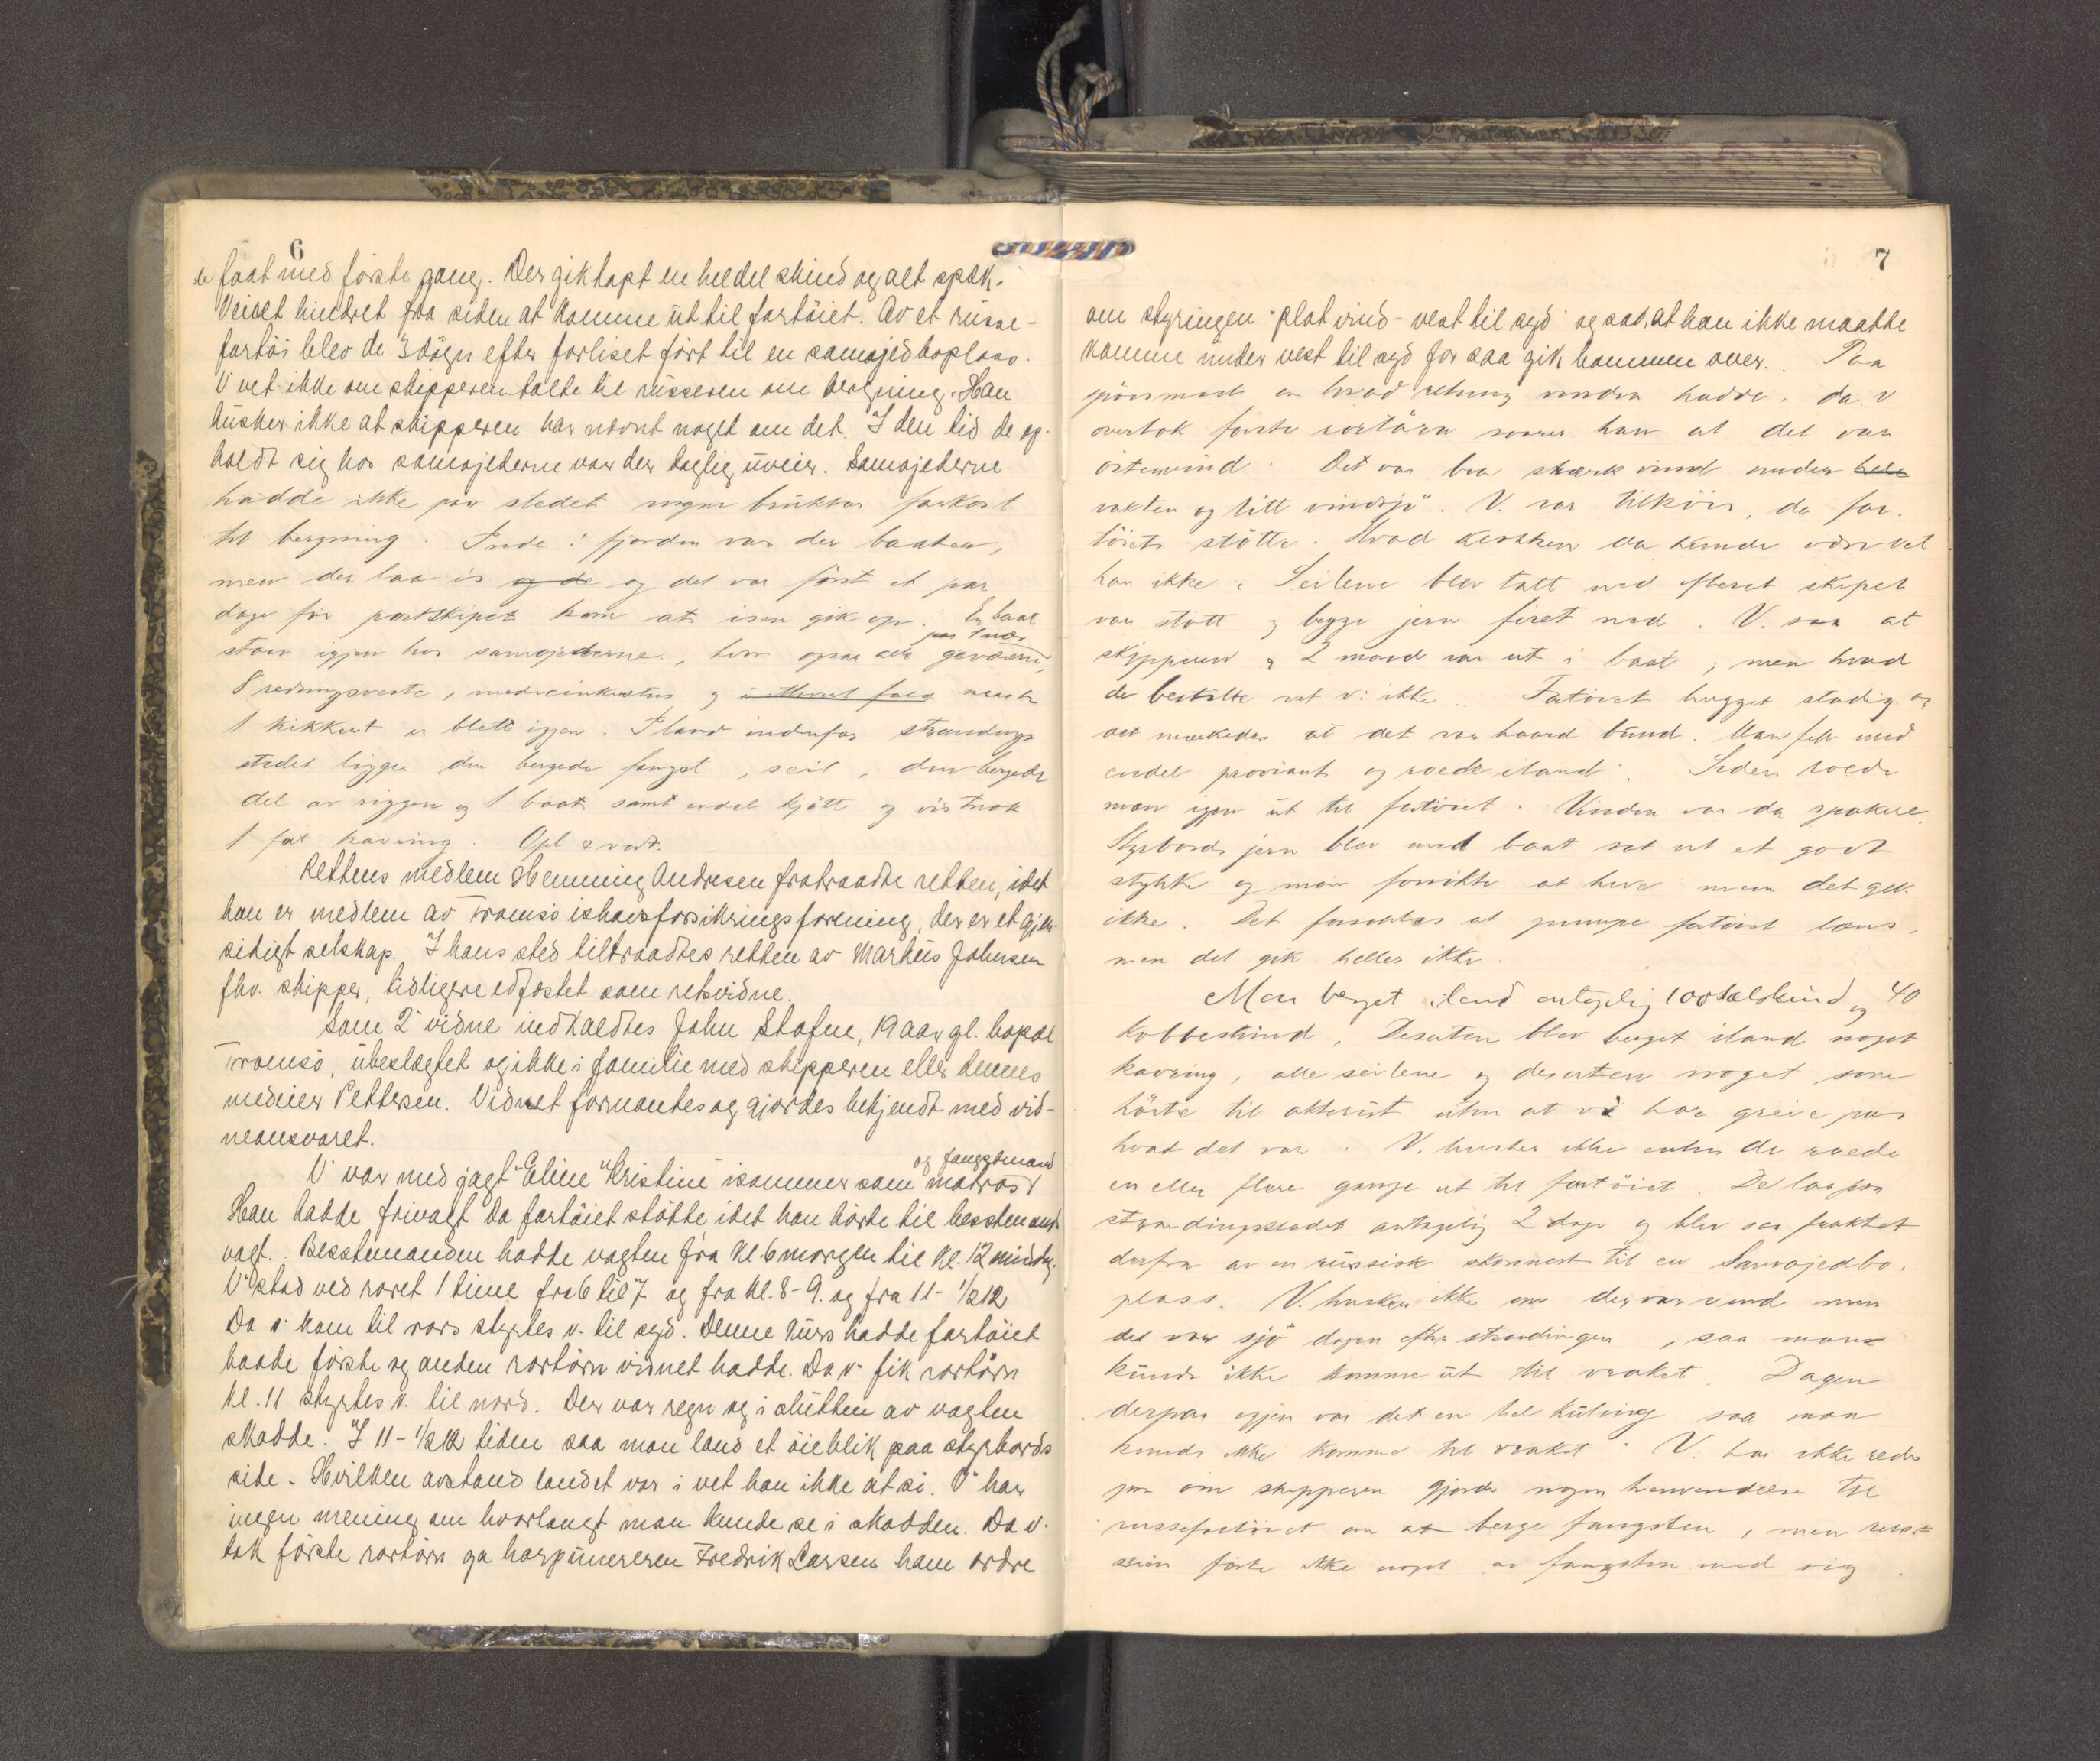 6
de faat med første gang. Der gik tapt en heldel skind og alt spæk.
Veiret hindret fra siden at komme ut til fartøiet. Av et russe-
fartøi blev de 3 døgn efter forliset ført til en samojedboplass.
V vet ikke om skipperen talte til russeren om bergning. Han
husker ikke at skipperen har nævnt noget om det. I den tid de op-
holdt sig hos samojederne var der daglig uveir. Samojederne
hadde ikke paa stedet nogen brukbar farkost
til bergning. Inde i fjorden var der baater,
men der laa is og de og det var først et par
dage før postskipet kom at isen gik op. En baat
staar igjen hos samojederne, hvor ogsaa alle geværene,
paa 1 nær
8 redningsveste, medicinkisten og i ethvert fald
1 kikkert er blett igjen. I land indenfor strandings
stedet ligger den bergede fangst, seil, den bergede
del av riggen og 1 baat samt endel kjøtt og vistnok
1 fat kavring. Opl & vedt.
Rettens medlem Henning Andresen fratraadte retten, idet
han er medlem av Tromsø ishavsforsikringsforening, der er et gjen-
sidigt selskap. I hans sted tiltraadtes retten av Markus Johnsen
fhv. skipper, tidligere edfæstet som retsvidne.
Som 2' vidne indkaldtes John Stafne, 19 aar gl. bopæl
Tromsø, ubeslægtet og ikke i familie med skipperen eller dennes
medeier Pettersen. Vidnet formantes og gjordes bekjendt med vid-
neansvaret.
V var med jagt "Eline Kristine" isommer som matros
og fangstmand
Han hadde frivagt da fartøiet støtte idet han hørte til besstemand
vagt. Besstemanden hadde vagten fra kl. 6 morgen til kl. 12 middag.
V stod ved roret 1 time fra 6 til 7 og fra kl. 8-9. og fra 11- 1/2 12
Da v. kom til rors styrtes v. til syd. Denne kurs hadde fartøiet
baade første og anden rortørn vidnet hadde. Da v. fik rortørn
kl. 11 styrtes v. til nord. Der var regn og i slutten av vagten
skodde. I 11- 1/2 12 tiden saa man land et øieblik paa styrbords
side. Hvilken avstand landet var i vet han ikke at si. V har
ingen mening om hvorlangt man kunde se i skodden. Da v.
tok første rortørn ga harpunereren Fredrik Larsen ham ordre
7
om styringen "plat vind - vest til syd" og sa, at han ikke maatte
komme under vest til syd for saa gik bommen over. Paa
spørsmaal om hvad retning vinden hadde, da v
overtok første rortørn svarer han at det var
østenvind. Det var bra stærk vind under hele
vakten og litt vindsjø. V. var tilkøis, da far-
tøiet støtte. Hvad klokken da kunde være vet
han ikke. Seilene blev tatt ned efterat skipet
var støtt og begge jern firet ned. V. saa at
skipperen og 2 mand var ut i baat, men hvad
de bestilte vet v. ikke. Fartøiet hugget stadig og
det merkedes at det var haard bund. Man fik med
endel proviant og roede iland. Siden roede
man igjen ut til fartøiet. Vinden var da spakere.
Styrbords jern blev med baat sat ut et godt
stykke og man forsøkte at hive men det gik
ikke. Det forsøktes at pumpe fartøiet læns,
men det gik heller ikke.
Man berget iland antagelig 100 sælskind og 40
kobbeskind. Desuten blev berget iland noget
kavring, alle seilene og desuten noget, som
hørte til akterut uten at v har greie paa
hvad det var. V. husker ikke enten de roede
en eller flere gange ut til fartøiet. De laa paa
strandingsstedet antagelig 2 dage og blev saa fraktet
derfra av en russisk skonnert til en Samojedbo-
plass. V. husker ikke om der var vind men
det var sjø dagen efter strandingen, saa man
kunde ikke komme ut til vraket. Dagen
derpaa igjen var det en hel kuling saa man
kunde ikke komme til vraket. V. har ikke rede
paa om skipperen gjorde nogen henvendelse til
russefartøiet om at berge fangsten, men russe
førte ikke noget av fangsten med sig.